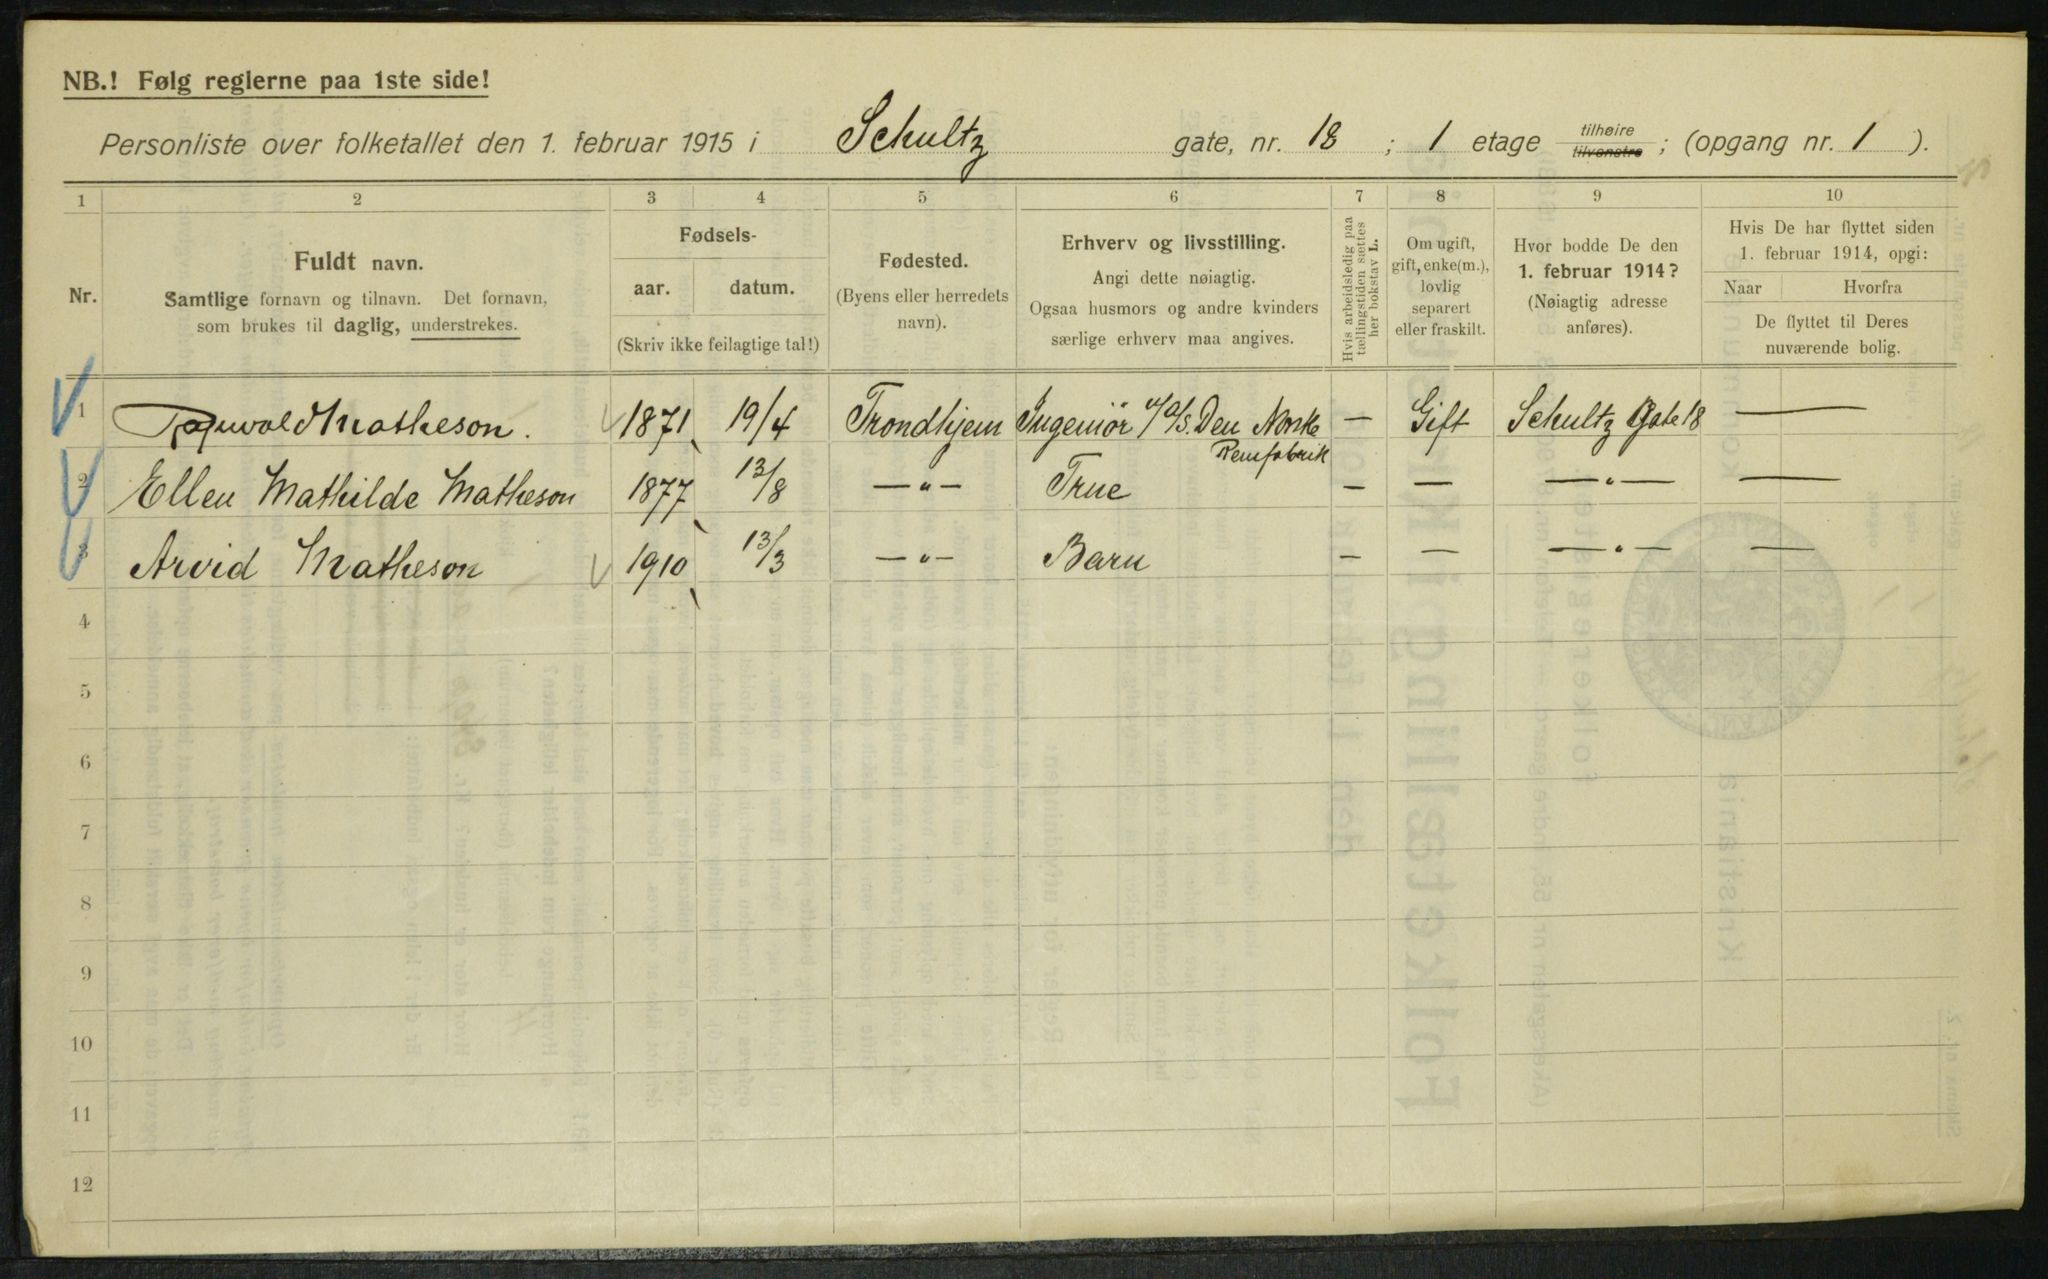 NB.! Følg reglerne paa 1ste side!
Personliste over folketallet den 1. februar 1915 i Schultz gate, nr. 18 ; 1 etage tilhøire tilvenstre ; (opgang nr. 1 ).
1 2 3 4 5 6 7 8 9 10
Nr.
Fuldt navn.
Samtlige fornavn og tilnavn. Det fornavn,
som brukes til daglig, understrekes.
Fødsels-
aar. datum.
(Skriv ikke feilagtige tal!)
Fødested.
(Byens eller herredets
navn).
Erhverv og livsstilling.
Angi dette nøiagtig.
Ogsaa husmors og andre kvinders
særlige erhverv maa angives.
Hvis arbeidsledig paa
tællingstiden sættes
her bokstav L.
Om ugift,
gift, enke(m.),
lovlig
separert
eller fraskilt.
Hvor bodde De den
1. februar 1914?
(Nøiagtig adresse
anføres).
Hvis De har flyttet siden
1. februar 1914, opgi:
Naar Hvorfra
De flyttet til Deres
nuværende bolig.
1 Ragnvald Matheson. 1871 19/4 Trondhjem Ingeniør A/S. Den Norske Remfabrik — Gift Schultz Gate 18 —
2 Ellen Mathilde Matheson 1877 13/8 — " — Frue — — — " — —
3 Arvid Matheson 1910 13/3 — " — Barn — — — " — —
4
5
6
7
8
9
10
11
12